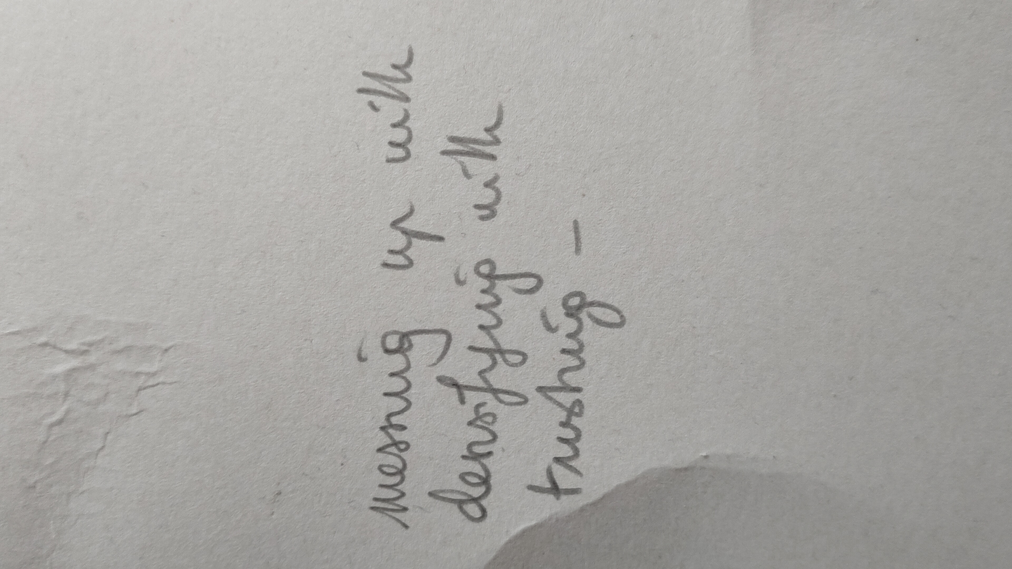 messing up with
densifying with
trusting –